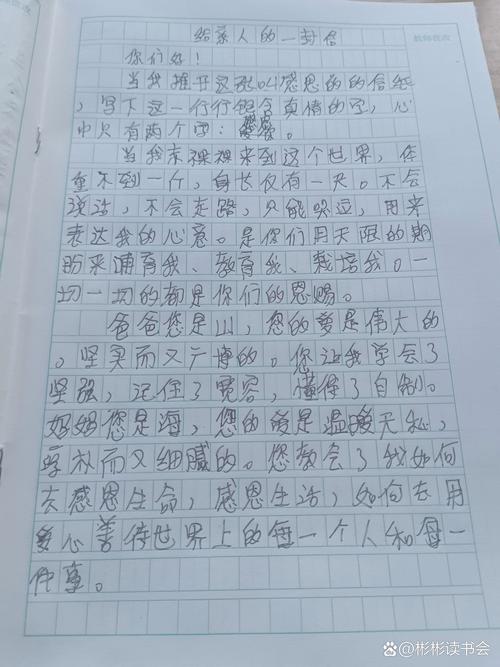 给亲人的一封信
教师批改
你们好！
当我推开这张叫感恩的的信纸
，写下这一行行饱含真情的字，心
中只有两个字：感恩。
当我赤裸裸来到这个世界，体
重不到一斤，身长仅有一天。不会
说话，不会走路，只能哭泣，用来
表达我的心意。是你们用无限的期
盼来哺育我、教育我、栽培我。一
切一切的都是你们的恩赐。
爸爸您是山，您的爱是伟大的
。坚实而又广博的。您让我学会了
坚强，记住了宽容，懂得了自制。
妈妈您是海，您的爱是温暖无私，
淳朴而又细腻的。您教会了我如何
去感恩生命，感恩生活，如何去用
爱心善待世界上的每一个人和每一
件事。
彬彬读书会